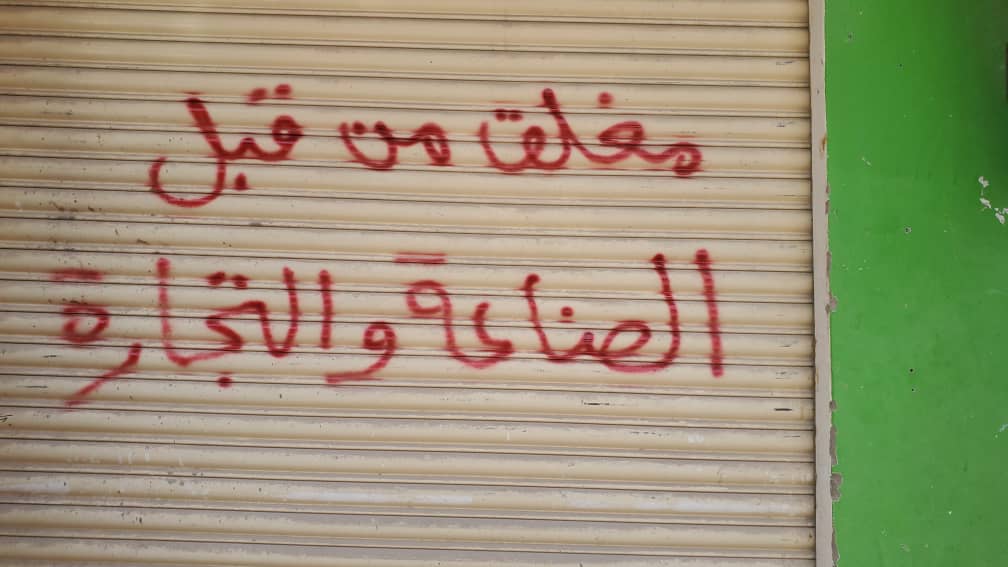 مغلق من قبل
الصناعة والتجارة